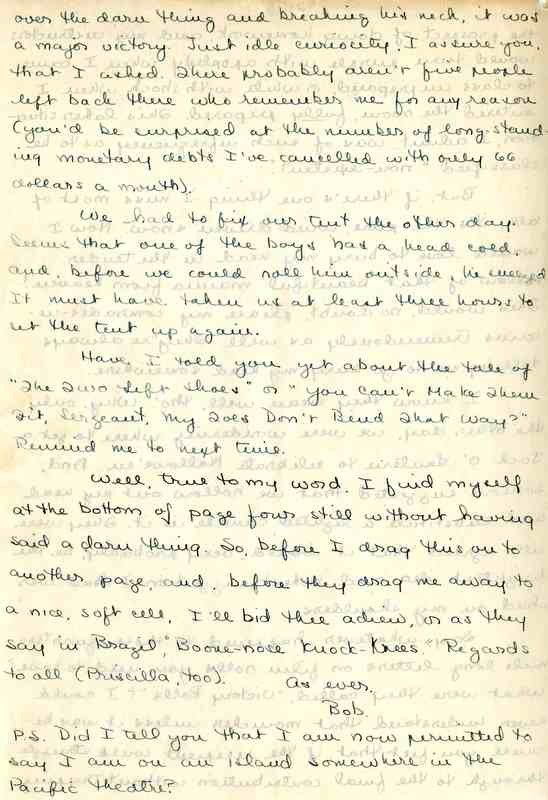 over the darn thing and breaking his neck, it was
a major victory. Just idle curiocity, I assure you,
that I asked. There probably aren't five people
left back there who remember me for any reason
(you'd be surprised at the number of long-stand-
ing monetary debts I've cancelled with only 66
dollars a month).
We had to fix our tent the other day.
Seems that one of the boys has a head cold,
and, before we could roll him outside, he sneezed.
It must have taken us at least three hours to
put the tent up again.
Have I told you yet about the tale of
"The Two Left Shoes" or "You Can't Make Them
Fit, Sergeant, My Toes Don't Bend That Way?"
Remind me to next time.
Well, true to my word, I find myself
at the bottom of page four still without having
said a darn thing. So, before I drag this on to
another page, and, before they drag me away to
a nice, soft cell, I'll bid thee adieu, or as they
say in Brazil, "Boone-nose Knock-Knees." Regards
to all (Priscilla, too).
As ever,
Bob.
P.S. Did I tell you that I am now permitted to
say I am on an island somewhere in the
Pacific Theatre?